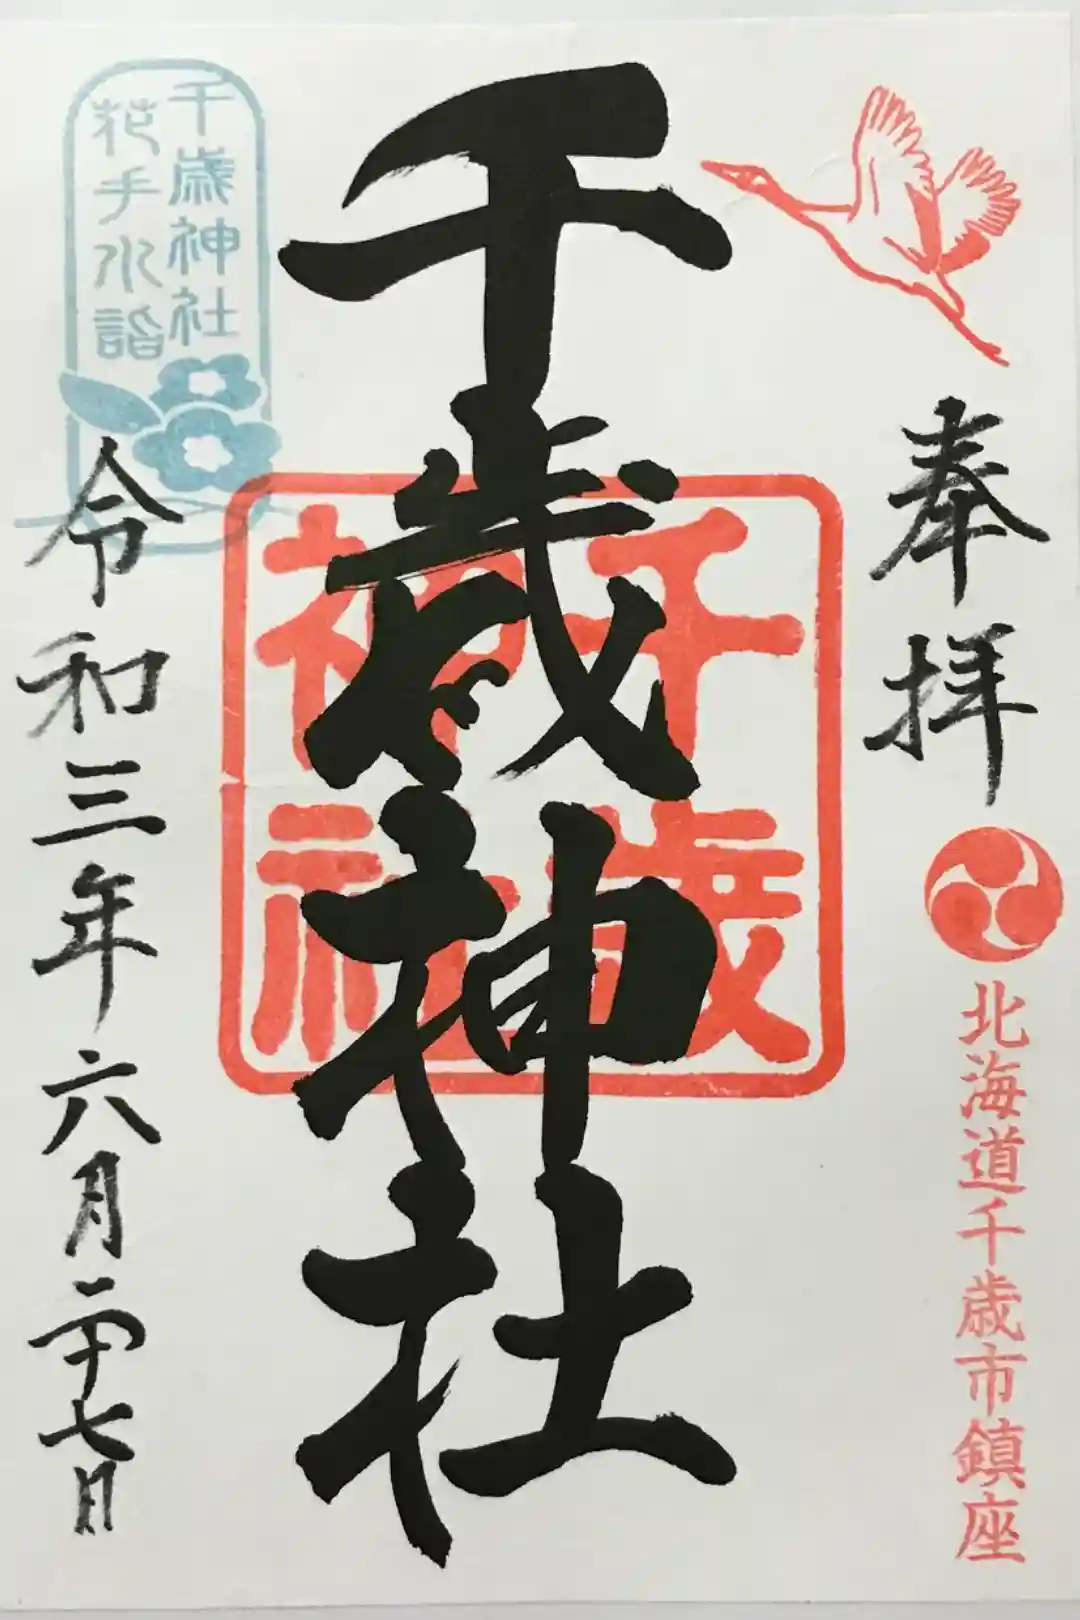 奉拝
北海道千歳市鎮座
千歳神社
千歳
神社
千歳神社
花手水詣
令和三年六月二十七日